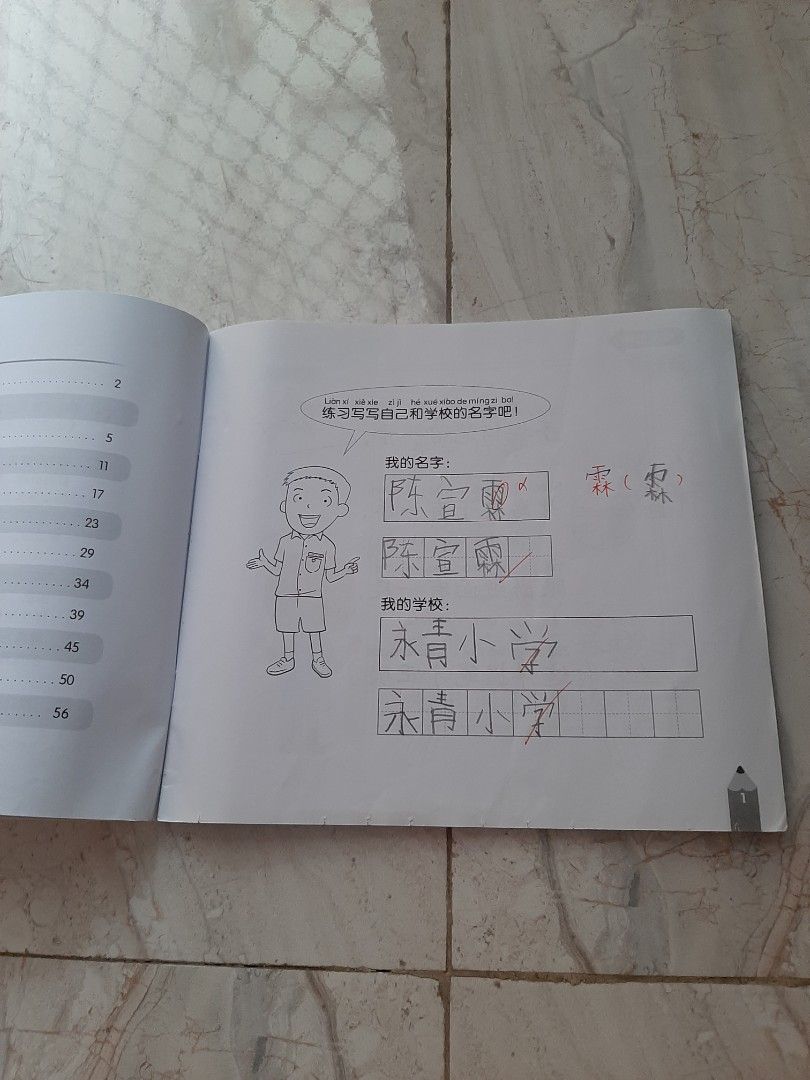 ............ 2
............ 5
............ 11
............ 17
............ 23
............ 29
............ 34
............ 39
............ 45
............ 50
............ 56
Liàn xí xiě xie zì jǐ hé xué xiào de míng zi ba!
练习写写自己和学校的名字吧！
我的名字：
陈宣霖
霖（霖）
陈宣霖
我的学校：
永青小学
永青小学
1